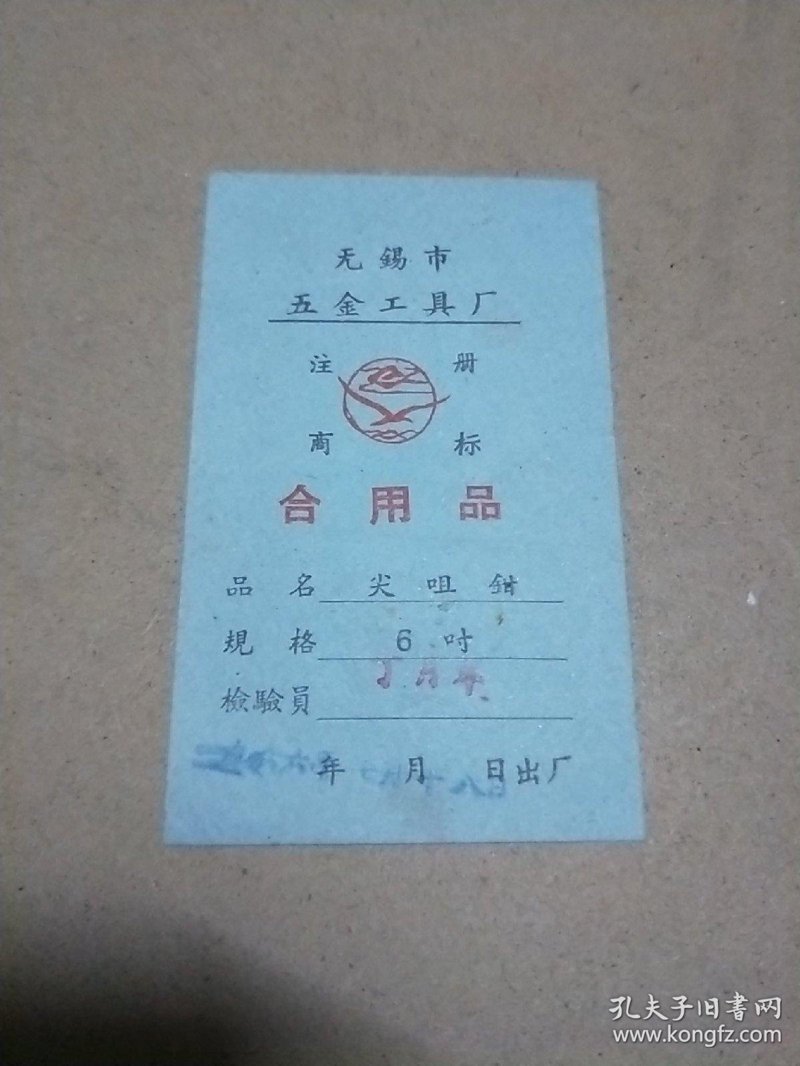 无錫市
五金工具厂
注 册
商 标
合用品
品名 尖咀鉗
規格 6吋
檢驗員
年 月 日出厂
孔夫子旧书网
www.kongfz.com